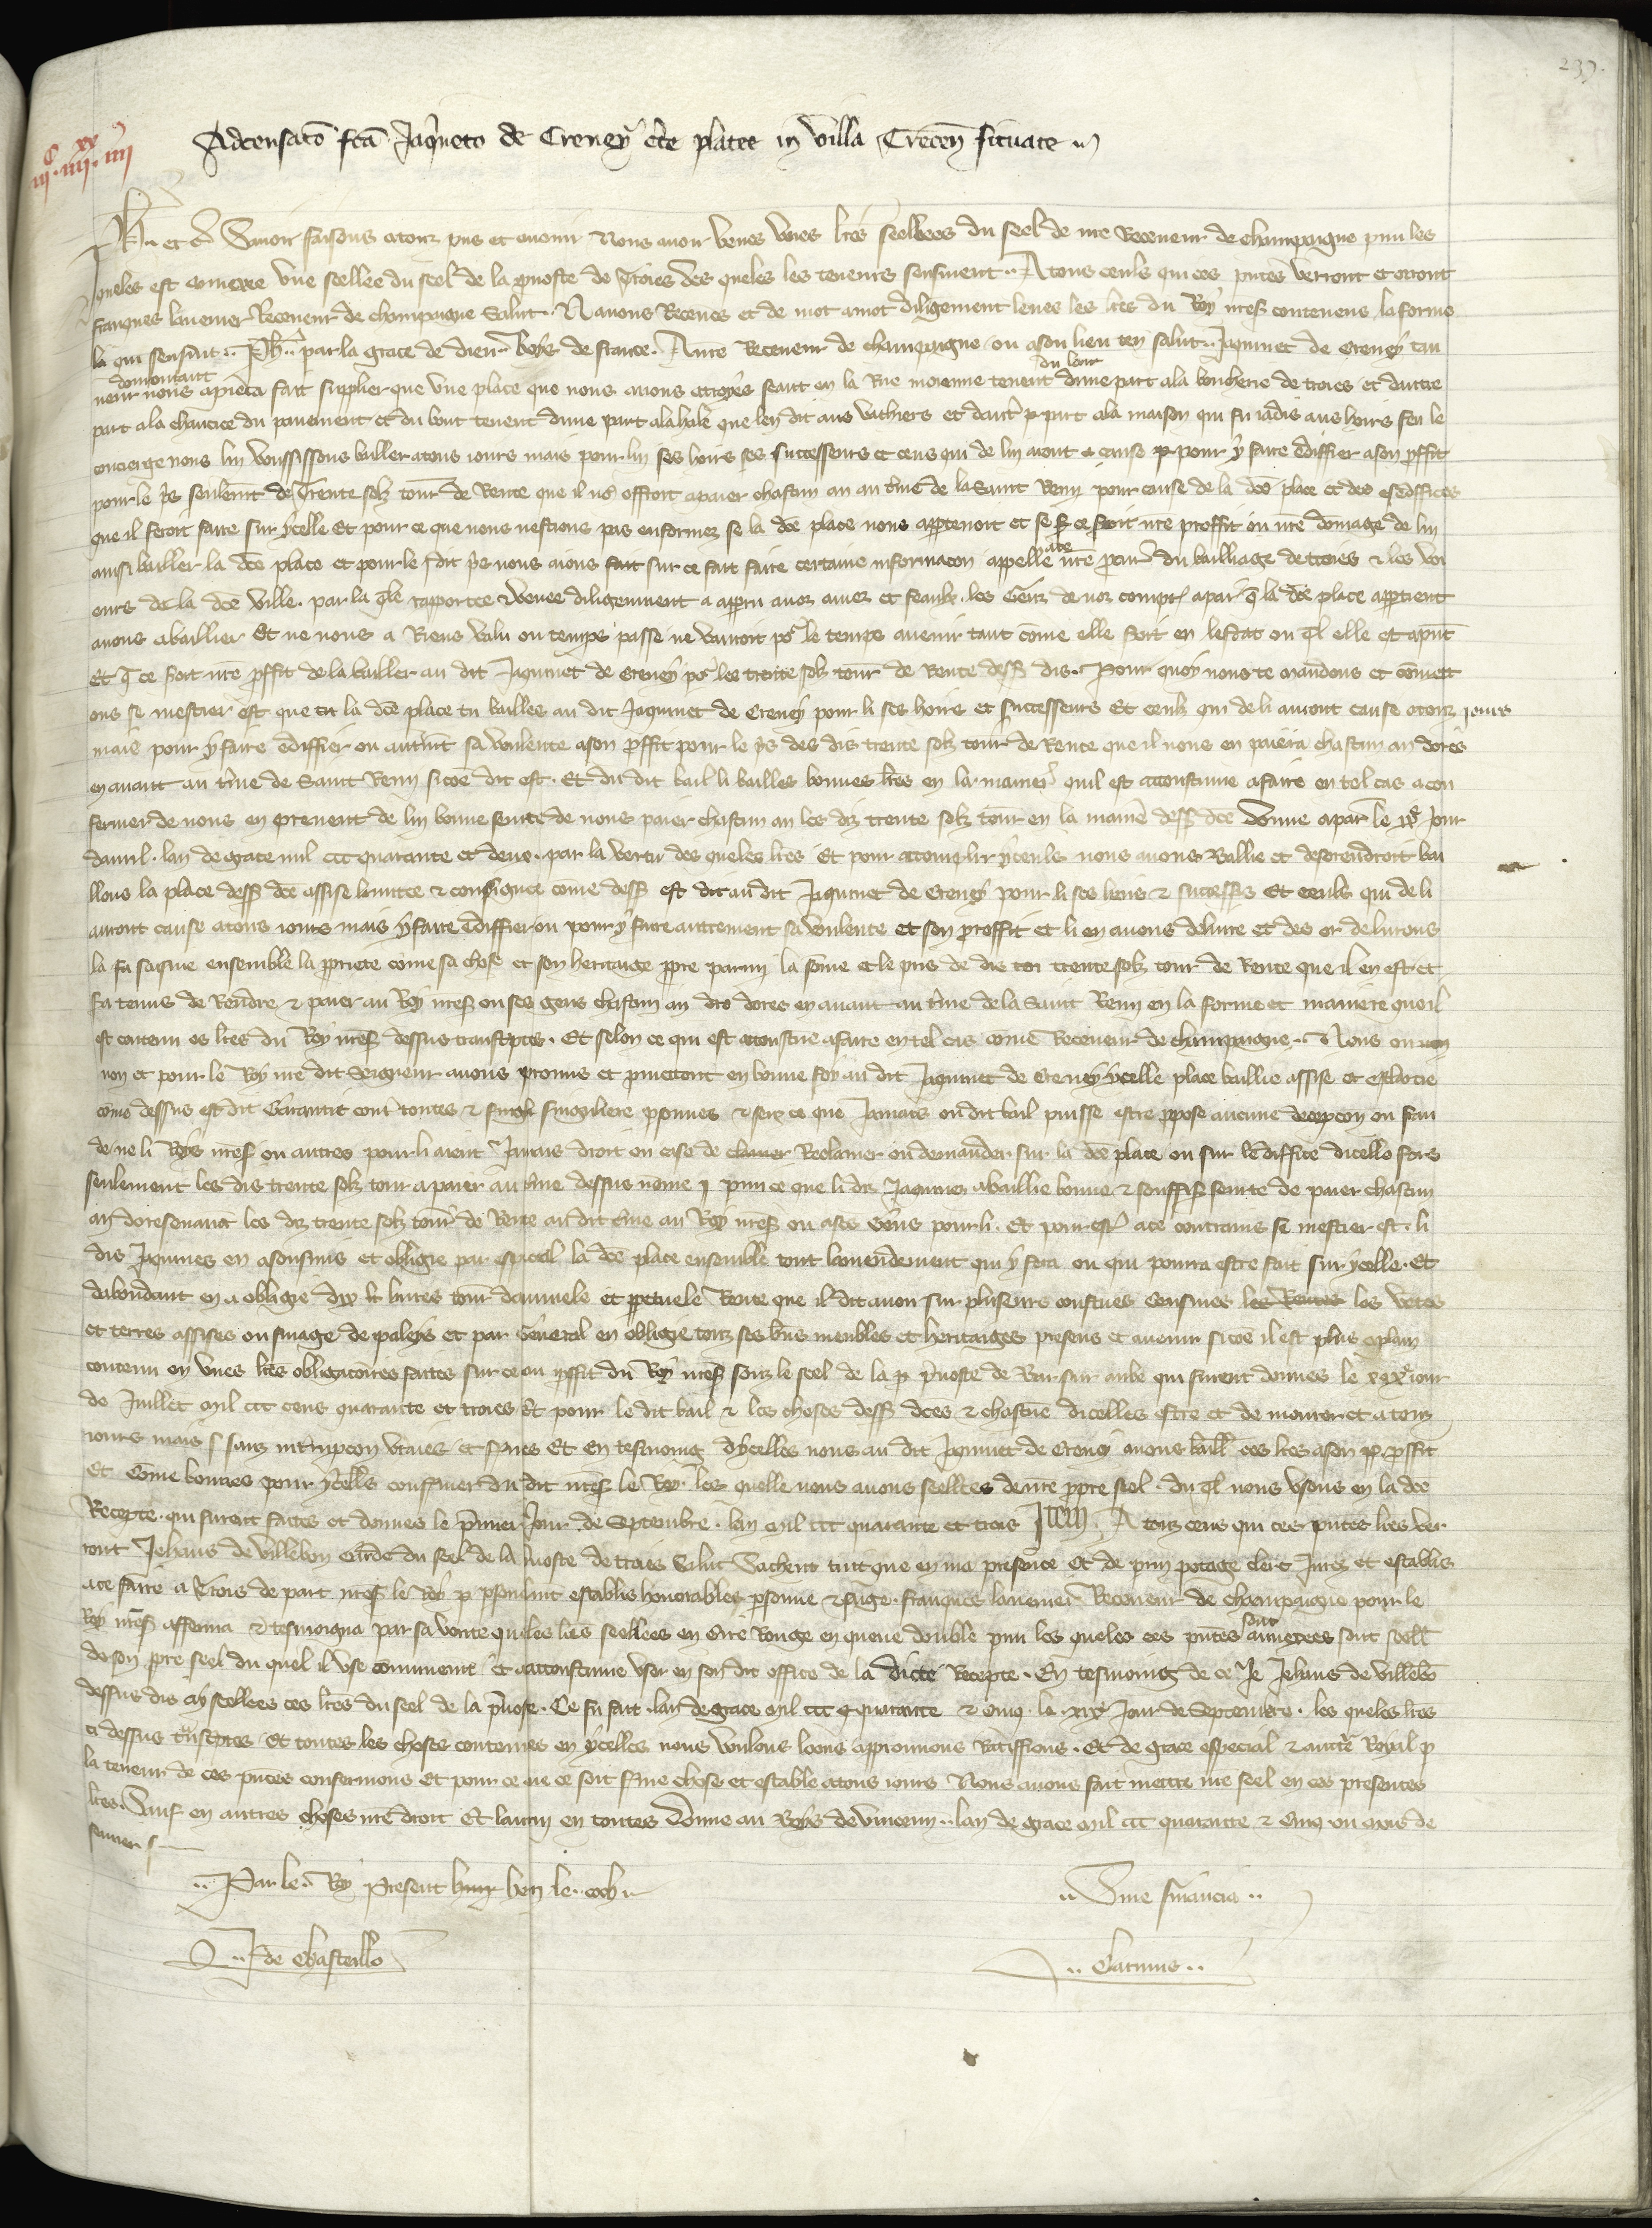 239.
iii c iiii xx iiii
Adcensacio fca Jaqueto de Creney cte platee in villa Trecen situate
Ph. et c Savoir faisons a touz pns et avenir Nous avoir veues unes lres seellees du seel de nre Receveur de champaigne pmi les
queles est annexee une seellee du seel de la prevoste de Troies des queles les teneurs sensuivent A tous ceuls qui ces pntes verront et orront
franques Receveur de champaigne Salut. Nous avons Receues et de mot a mot diligement leues les lres du Roy nres contenens la forme
la qui sensuit Ph. par la grace de dieu Roys de france. A nre Receveur de champaigne ou a son lieu ten salut Jaquinet de Creney tan
neur demourant nous a fait supplier que une place que nous avons a troyes seant en la Rue moienne tenent du lonc dune part a la boucherie de troies et dautre
part a la chaucice du pavement et du bout tenent dune part a la hale que len dit aus et daut part a la maison qui fu iadis aus hoirs feu le
concierge nous lui voussissons bailler a tous iours mais pour lui ses hoirs ses successeurs et ceus qui de lui aront cause pour y faire ediffier a son pffit
pour le pris seulemt de Trente solz tour de Rente que il no offroit a paier chascun an au tme de la Saint Remi pour cause de la dce place et des ediffices
que il feroit faire sur ycelle Et pour ce que nous nestions pas enformez se la dce place nous appartenoit et se ce seroit nre proffit ou nre domage de lui
ainsi bailler la dce place et pour le dit pris nous aions fait sur ce fait faire certaine informacon appelle a ce nre pcur du bailliage de troies et les voi
eurs de la dce ville. par la qle rapportee et veue diligemment a apparu a noz amez et feaulx les Genz de noz comptes a par q la dce place appartient
a nous a baillier Et ne nous a Riens valu ou temps passe ne vauroit po le temps avenir tant come elle soit en lestat ou ql elle est a pnt
Et q ce soit nre pffit de la bailler au dit Jaquinet de Creney po les trente solz tour de Rente dess dis. Pour quoy nous te mandons et comett
ons se mestier est que la dce place tu bailles au dit Jaquinet de Creney pour li ses hoirs et successeurs Et ceulz qui de li auront cause a touz jours
mais pour y faire ediffier ou autremt sa voulente a son pffit pour le pris des dis trente solz tour de Rente que il nous en paiera chascun an dores
en avant au tme de Saint Remi sicoe dit est. Et du dit bail li bailles bonnes lres en la maniere quil est acoustume a faire en tel cas a con
fermer de nous en prenent de lui bonne seurte de nous paier chascun an les diz trente solz tour en la manie dess dce Donne a par le jour
davril. lan de grace mil ccc quarante et deus. par la vertu des queles lres Et pour acomplir yceuls nous avons Baillie et desorendroit bai
llons la place dess dce assise come dess est dit au dit Jaquinet de Creney pour li ses hoirs et successes Et ceuls qui de li
auront cause a tous iours mais y faire ediffier ou pour y faire autrement sa voulente et son proffit et li en avons delivre et des or delivrons
la saisine ensemble la ppriete come sa chose et son heritaige ppre parmi la some et le pris de trente solz tour de Rente que il en est et
sa tenus de Rendre et paier au Roy nres ou ses gens chascun an dores en avant au tme de la Saint Remi en la forme et maniere quil
est contenu es lres du Roy nres dessus transcptes. Et selon ce qui est acoustue a faire en tel cas come Receveur de champaigne. Nous ou
non et pour le Roy nre dit Seigneur avons promis et pmettont en bonne foy au dit Jaquinet de Creney ycelle place baillie assise et
come dessus est dit Garantir contre toutes et singuliere psonnes et senz ce que Jamais ou dit bail puisse estre ppose aucune decepcon ou frau
de ne li Roys nres ou autres pour li aient Jamais droit ou cause de Reclamer ou demander sur la dce place ou sur lediffice dicelle fors
seulement les dis trente solz tour a paier au tme dessus nome pmi ce que li diz Jaquins a baillie bonne et souffis seurte de paier chascun
an doresenavat les diz trente solz tour de Rente au dit tme au Roy nres ou a ses Gens pour li. Et pour estre a ce contrains se mestier est. li
dis Jaquines en a soubmis et obligie par especial la dce place ensemble tout lamendement qui y sera ou qui pourra estre fait sur ycelle. Et
dabondant en a obligie dix livres tour dannuele et ppetuele Rente que il dit avoir sur plusieurs coustues Censives les
et terres assises ou finage de et par General en obligie touz ses bns meubles et heritaiges presens et avenir sicoe il est plus a plain
contenu en unes lres obligatoires faites sur ce ou pffit du Roy nres souz le seel de la prevoste de Bar sur aube qui furent donnes le jour
de Juillet mil ccc cens quarante et trois Et pour le dit bail et les choses dess dces et chascune dicelles estre et demourer et a touz
iours mais sanz intrupcon vraies et Et en tesmoing dycelles nous au dit Jaquinet de Creney avons baill ces lres a son pffit
Et come bonnes pour ycelles confirmer du dit nres le Roy les quelle nous avons seellees de nre ppre seel. du ql nous usons en la dce
Recepte. qui furent faites et donnes le pmier Jour de Septembre. lan mil ccc quarante et trois Item. A touz ceus qui ces pntes lres ver
ront Jehans de villebon Garde du seel de la prevoste de troies Salut Sachent tuit que en ma presence Et de clerc Jurez et establis
a ce faire a Trois de part nres le Roy psonelmt establis honorables psonne et sage. franques Receveur de champaigne pour le
Roy nres afferma et tesmoigna par sa verite que les lres seellees en Cire Rouge en queue double pmi les queles ces pntes sont annexees sont seell
de son ppre seel du quel il use comunemt et acoustume user en son dit office de la dicte Recepte. En tesmoing de ce Je Jehans de villebo
dessus dis ay seellees ces lres du seel de la prevoste. Ce fu fait. lan de grace mil ccc quarante et cinq le Jour de Septembre. les queles lres
ci dessus tnscptes Et toutes les choses contenues en ycelles nous voulons loons approuvons Ratiffions. Et de grace especial et aucte Royal p
la teneur de ces pntes confermons Et pour ce que ce soit ferme chose et estable a tous iours Nous avons fait mettre nre seel en ces presentes
lres. Sauf en autres choses nre droit Et lautrui en toutes Donne au Boys de vincenn. lan de grace mil ccc quarante et cinq ou mois de
fevrier
Par le Roy Present le
Sine financia
de Chasteillo